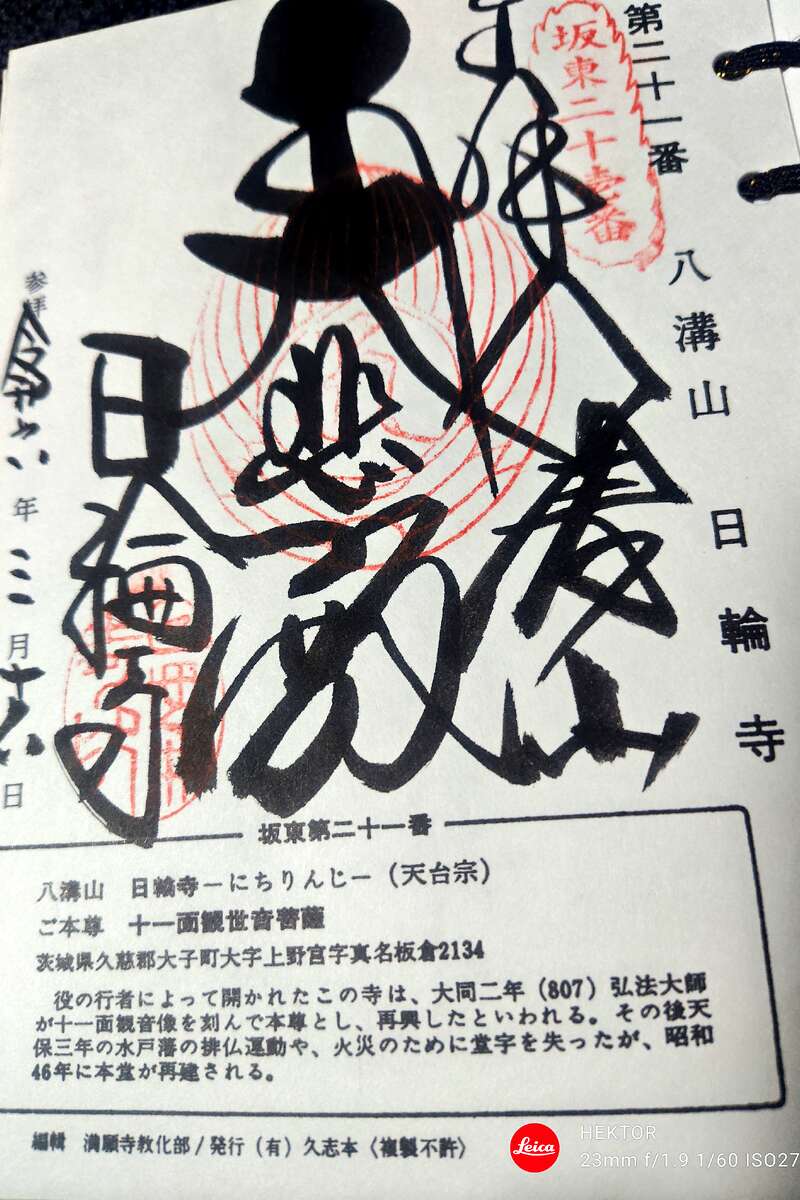 第二十一番
八溝山
日輪寺
坂東二十壱番
奉拝
八溝山
大悲殿
日輪寺
参拝 令和六年三月十六日
坂東第二十一番
八溝山 日輪寺―にちりんじ―(天台宗)
ご本尊 十一面観世音菩薩
茨城県久慈郡大子町大字上野宮字真名板倉2134
役の行者によって開かれたこの寺は、大同二年(807)弘法大師
が十一面観音像を刻んで本尊とし、再興したといわれる。その後天
保三年の水戸藩の排仏運動や、火災のために堂宇を失ったが、昭和
46年に本堂が再建される。
編輯 満願寺教化部/発行(有)久志本〈複製不許〉
Leica
HEKTOR
23mm f/1.9 1/60 ISO27